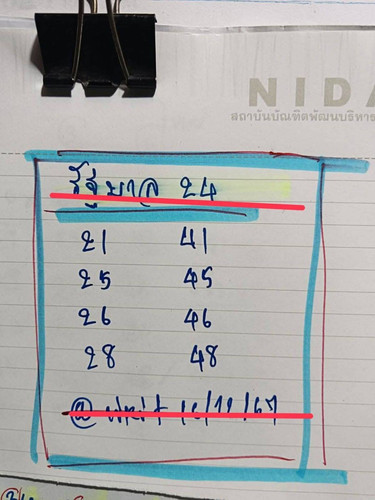 NIDA
สถาบันบัณฑิตพัฒนบริหาร
รัฐบาล 24
21 41
25 45
26 46
28 48